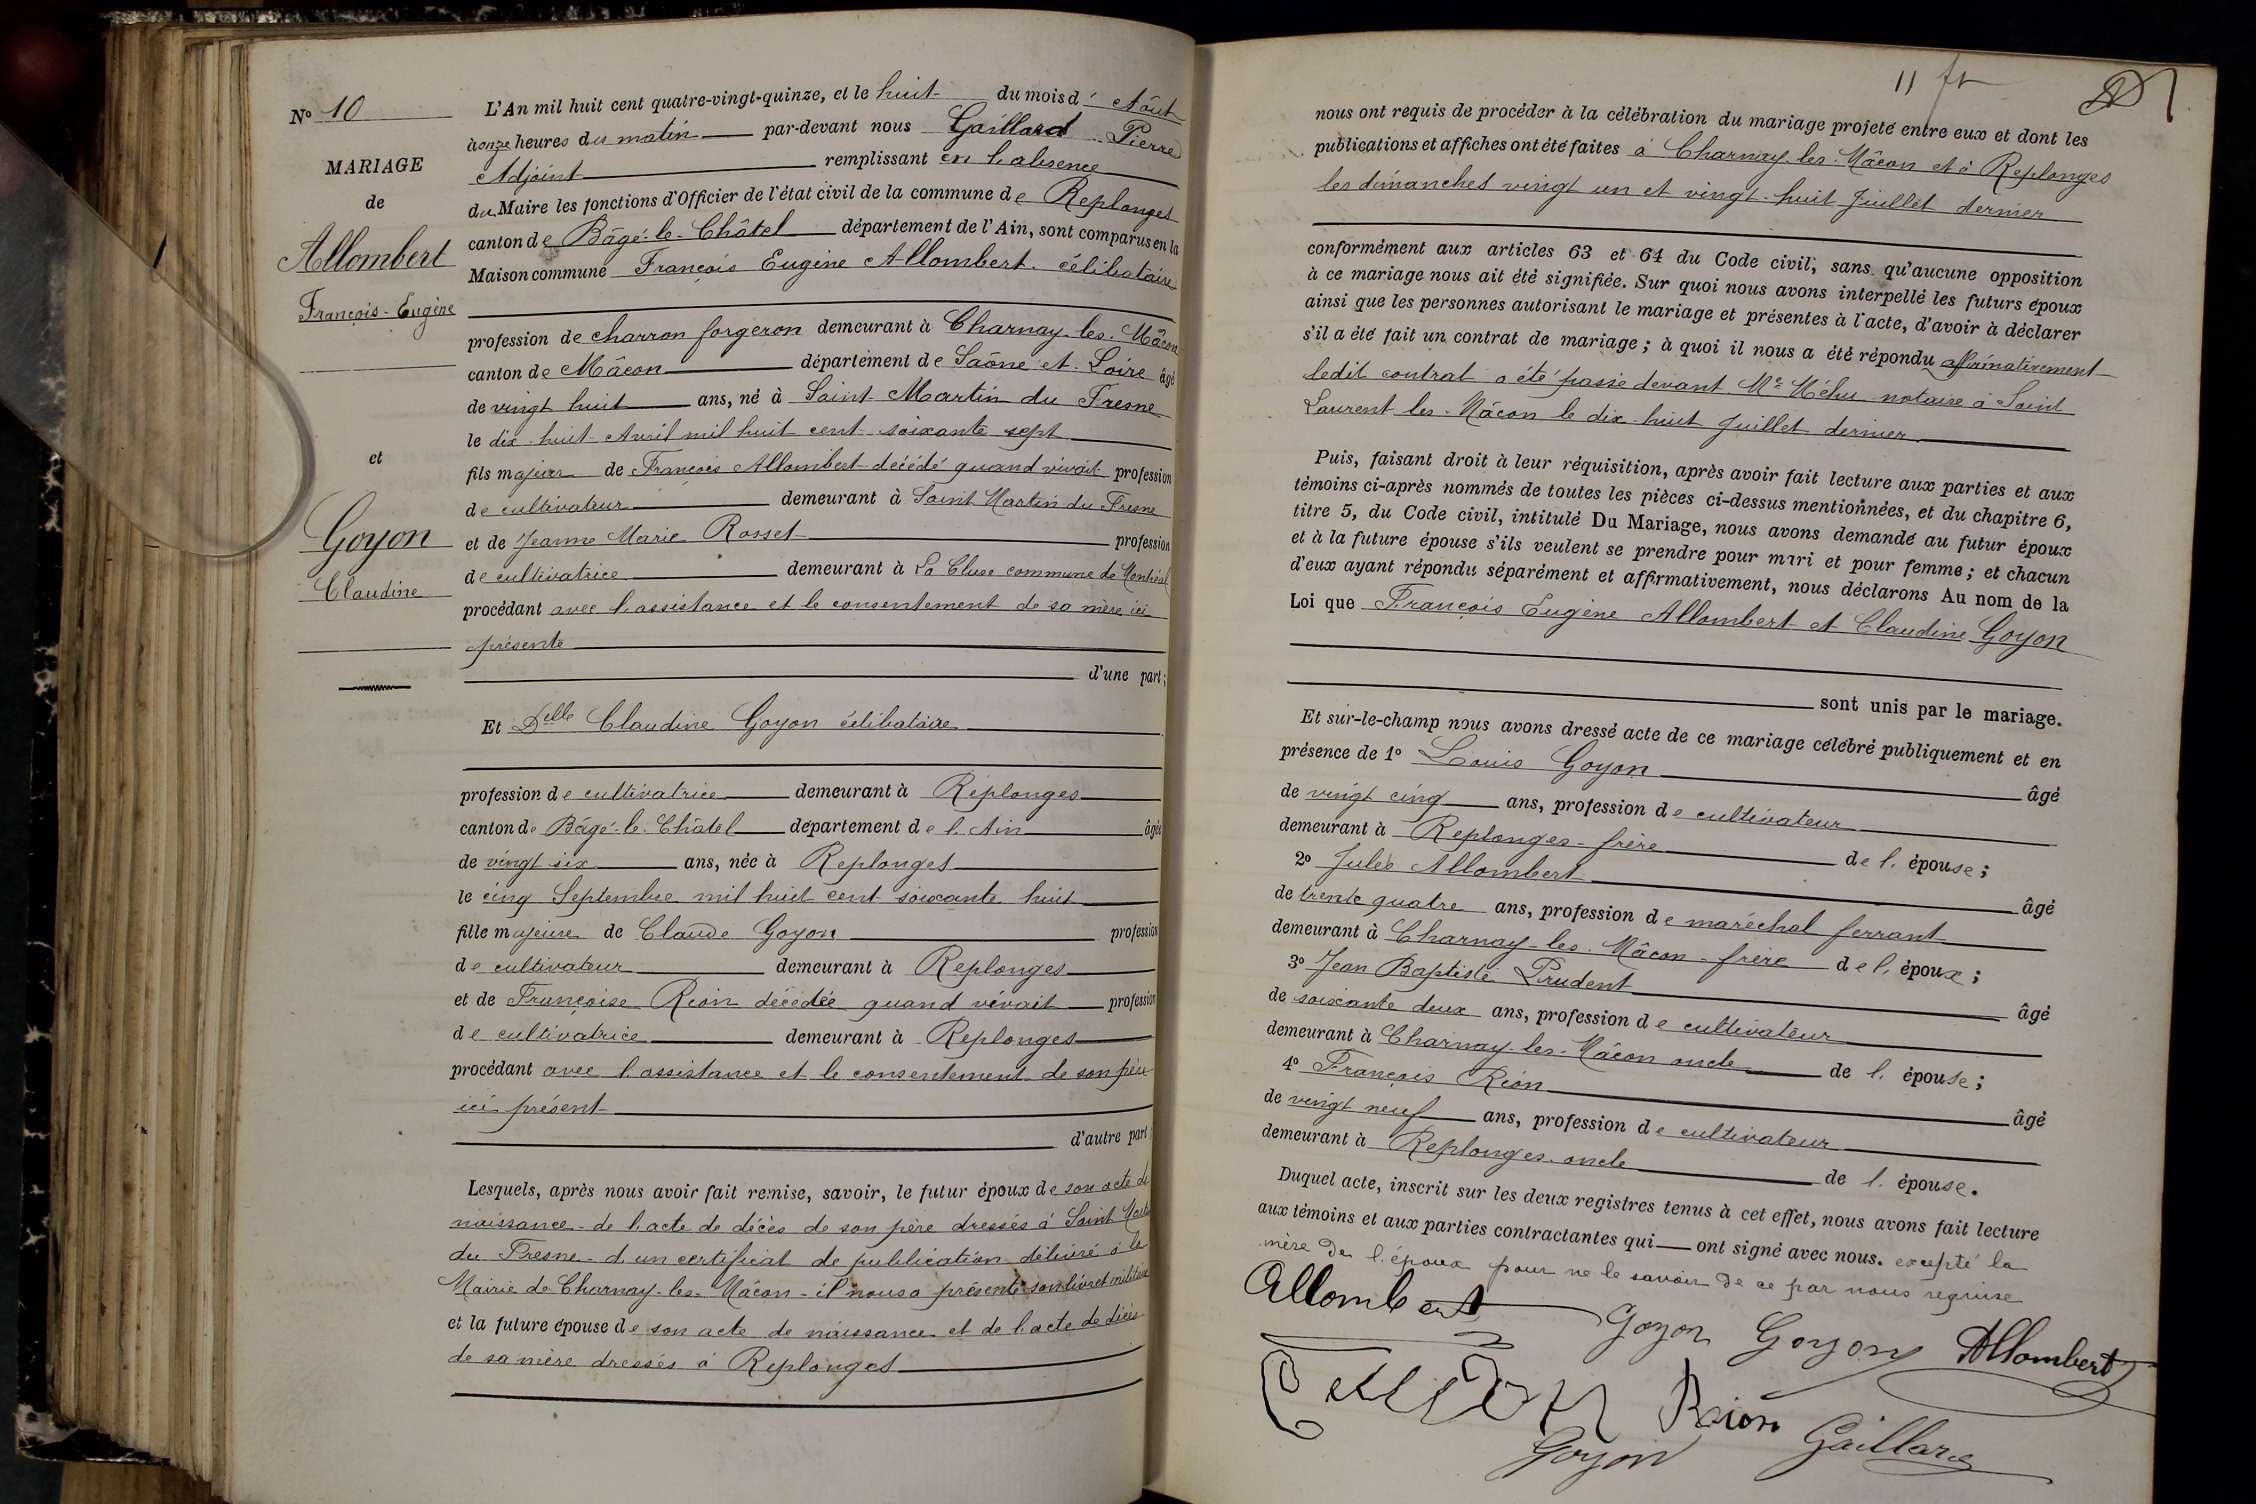 N° 10
MARIAGE
de
Allombert
François-Eugène
et
Goyon
Claudine
L'An mil huit cent quatre-vingt-quinze, et le huit du mois d' Août
à onze heures du matin par-devant nous Gaillard Pierre
Adjoint remplissant en l'absence
du Maire les fonctions d'Officier de l'état civil de la commune de Replonges
canton de Bâgé-le-Châtel département de l'Ain, sont comparus en la
Maison commune François Eugène Allombert célibataire
profession de charron forgeron demeurant à Charnay-les-Mâcon
canton de Mâcon département de Saône et Loire âgé
de vingt huit ans, né à Saint Martin du Fresne
le dix-huit Avril mil huit cent soixante sept
fils majeur de François Allombert décédé quand vivait profession
de cultivateur demeurant à Saint Martin du Fresne
et de Jeanne Marie Rosset profession
de cultivatrice demeurant à La Cluse commune de Montréal
procédant avec l'assistance et le consentement de sa mère ici
présente
d'une part;
Et Delle Claudine Goyon célibataire
profession de cultivatrice demeurant à Replonges
canton de Bâgé-le-Châtel département de l'Ain âgée
de vingt six ans, née à Replonges
le cinq Septembre mil huit cent soixante huit
fille majeure de Claude Goyon profession
de cultivateur demeurant à Replonges
et de Françoise Rion décédée quand vivait profession
de cultivatrice demeurant à Replonges
procédant avec l'assistance et le consentement de son père
ici présent
d'autre part
Lesquels, après nous avoir fait remise, savoir, le futur époux de son acte de
naissance - de l'acte de décès de son père dressés à Saint Martin
du Fresne - d'un certificat de publication délivré à la
Mairie de Charnay-les-Mâcon - il nous a présenté son livret militaire
et la future épouse de son acte de naissance et de l'acte de décès
de sa mère dressés à Replonges
11
nous ont requis de procéder à la célébration du mariage projeté entre eux et dont les
publications et affiches ont été faites à Charnay-les-Mâcon et à Replonges
les dimanches vingt un et vingt-huit Juillet dernier
conformément aux articles 63 et 64 du Code civil, sans qu'aucune opposition
à ce mariage nous ait été signifiée. Sur quoi nous avons interpellé les futurs époux
ainsi que les personnes autorisant le mariage et présentes à l'acte, d'avoir à déclarer
s'il a été fait un contrat de mariage; à quoi il nous a été répondu affirmativement
ledit contrat a été passé devant Me Méhu notaire à Saint
Laurent les-Mâcon le dix-huit Juillet dernier
Puis, faisant droit à leur réquisition, après avoir fait lecture aux parties et aux
témoins ci-après nommés de toutes les pièces ci-dessus mentionnées, et du chapitre 6,
titre 5, du Code civil, intitulé Du Mariage, nous avons demandé au futur époux
et à la future épouse s'ils veulent se prendre pour mari et pour femme; et chacun
d'eux ayant répondu séparément et affirmativement, nous déclarons Au nom de la
Loi que François Eugène Allombert et Claudine Goyon
sont unis par le mariage.
Et sur-le-champ nous avons dressé acte de ce mariage célébré publiquement et en
présence de 1° Louis Goyon âgé
de vingt cinq ans, profession de cultivateur
demeurant à Replonges - frère de l'épouse;
2° Jules Allombert âgé
de trente quatre ans, profession de maréchal ferrant
demeurant à Charnay-les-Mâcon - frère de l'époux;
3° Jean Baptiste Prudent âgé
de soixante deux ans, profession de cultivateur
demeurant à Charnay-les-Mâcon oncle de l'épouse;
4° François Rion âgé
de vingt neuf ans, profession de cultivateur
demeurant à Replonges - oncle de l'épouse.
Duquel acte, inscrit sur les deux registres tenus à cet effet, nous avons fait lecture
aux témoins et aux parties contractantes qui ont signé avec nous. excepté la
mère de l'époux pour ne le savoir de ce par nous requise
Allombert Goyon Goyon Allombert
Rion
Goyon Gaillard